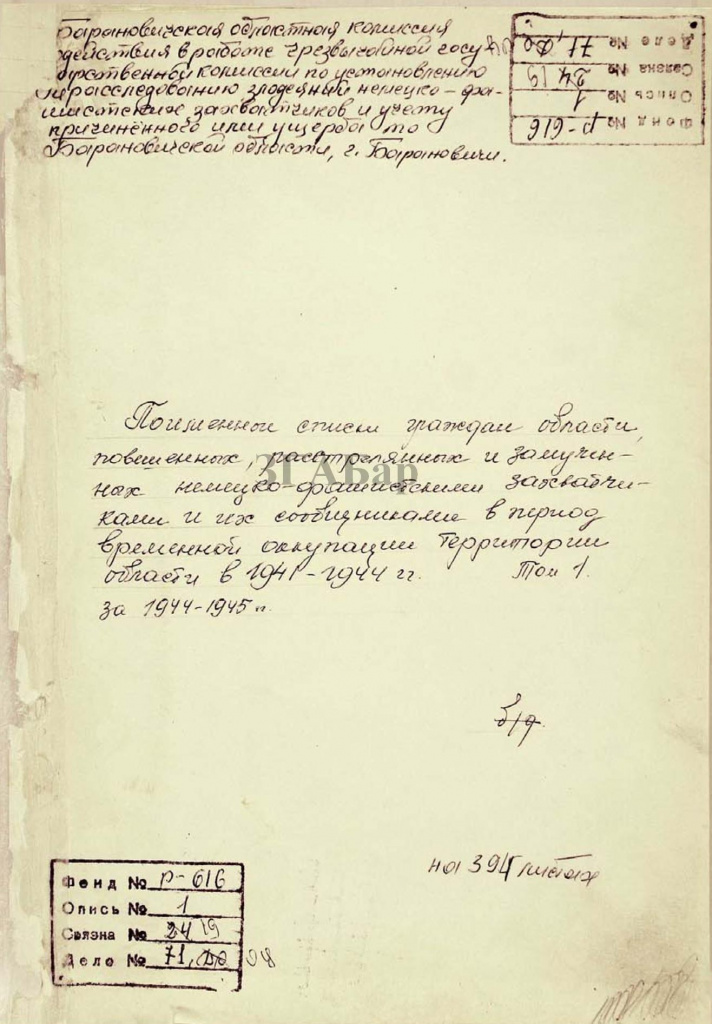 Барановичская областная комиссия
содействия в работе Чрезвычайной госу
дарственной комиссии по установлению
и расследованию злодеяний немецко-фа-
шистских захватчиков и учету
причинённого ими ущерба по
Барановичской области, г. Барановичи.
Фонд № Р-616
Опись № 1
Связка № 24 19
Дело № 71,
Поименной списки граждан области,
повешенных, расстрелянных и замучен-
ных немецко-фашистскими захватчи-
ками и их сообщниками в период
временной оккупации территории
области в 1941-1944 гг. Том 1.
за 1944-1945 г.
ЗГАБар
б/д
на 394 листах
Фонд № Р-616
Опись № 1
Связка № 24 19
Дело № 71,